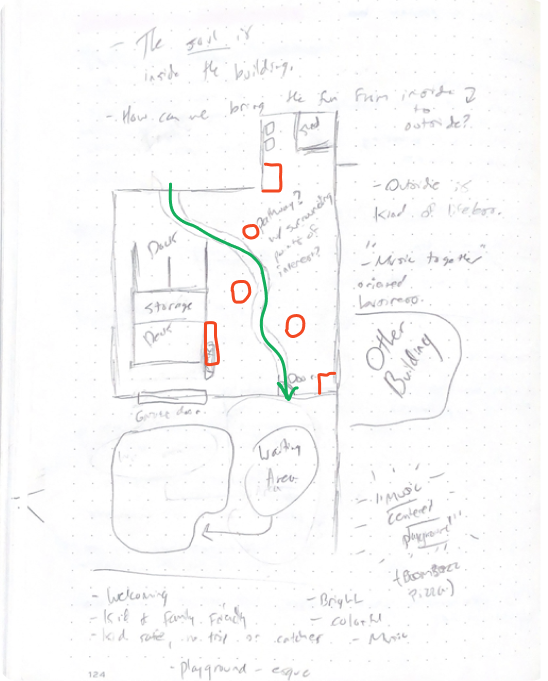 - The soul is
inside the building.
- How can we bring the fun from inside
to
outside?
- Outside is
kind of
pathway?
w/ surrounding
points of
interest?
- "Music together"
oriented
business.
Desk
Storage
Desk
Door
Other
Building
Garage door
Waiting
Area
- "Music
centered
playground"
(BoomBozz
Pizza)
- Welcoming
- Kid & Family Friendly
- Kid safe, no trip or catcher
- Bright
- colorful
- Music
- playground - esque
124